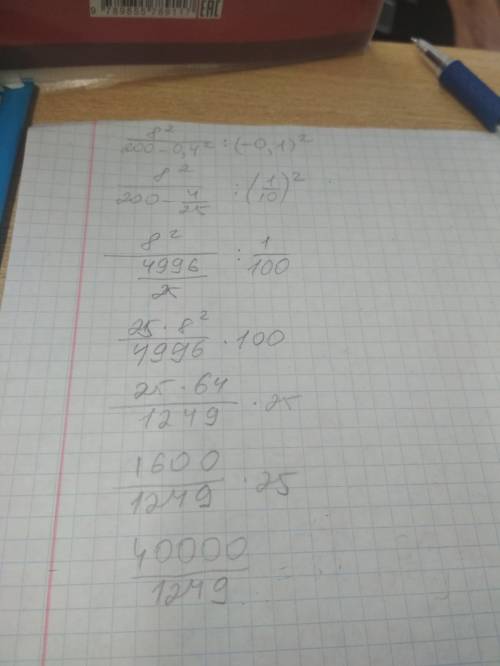 EAC
8² / (200 - 0,4²) : (-0,1)²
8² / (200 - 4/25) : (1/10)²
8² / (4996/25) : 1/100
25 · 8² / 4996 · 100
25 · 64 / 1249 · 25
1600 / 1249 · 25
40000 / 1249 = ...